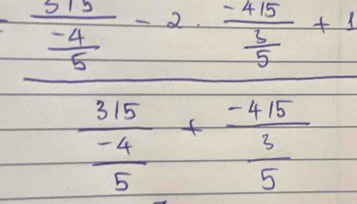 - 3/5 / (-4/5) - 2 . -4/5 / (3/5) + 1
3/5 / (-4/5) + -4/5 / (3/5)